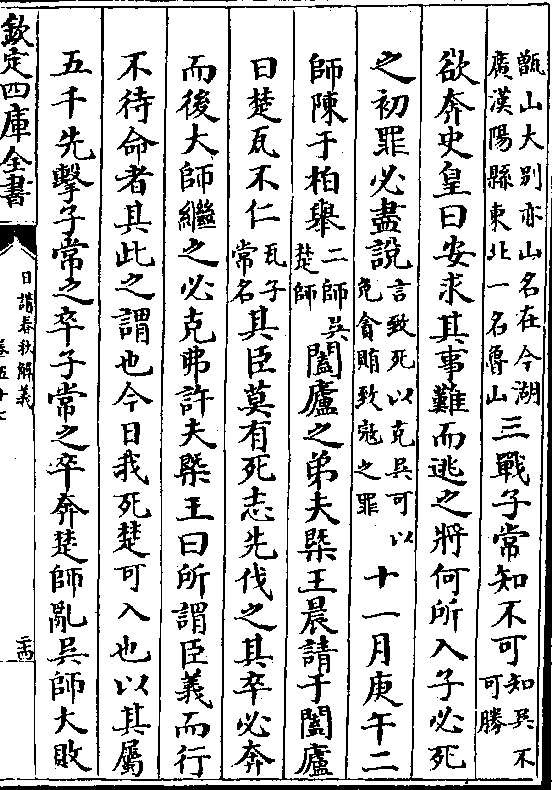 甑山大别亦山名在今湖
廣漢陽縣東北一名魯山
三戰子常知不可
知吳不
可勝
欲奔史皇曰安求其事難而逃之將何所入子必死
之初罪必盡說
言致死以克吳可以
免貪賄致寇之罪
十一月庚午二
師陳于柏舉
二師吳
楚師
闔廬之弟夫槩王晨請于闔廬
曰楚瓦不仁
瓦子
常名
其臣莫有死志先伐之其卒必奔
而後大師繼之必克弗許夫槩王曰所謂臣義而行
不待命者其此之謂也今日我死楚可入也以其屬
五千先擊子常之卒子常之卒奔楚師亂吳師大敗
欽定四庫全書
日講春秋解義
卷五十七